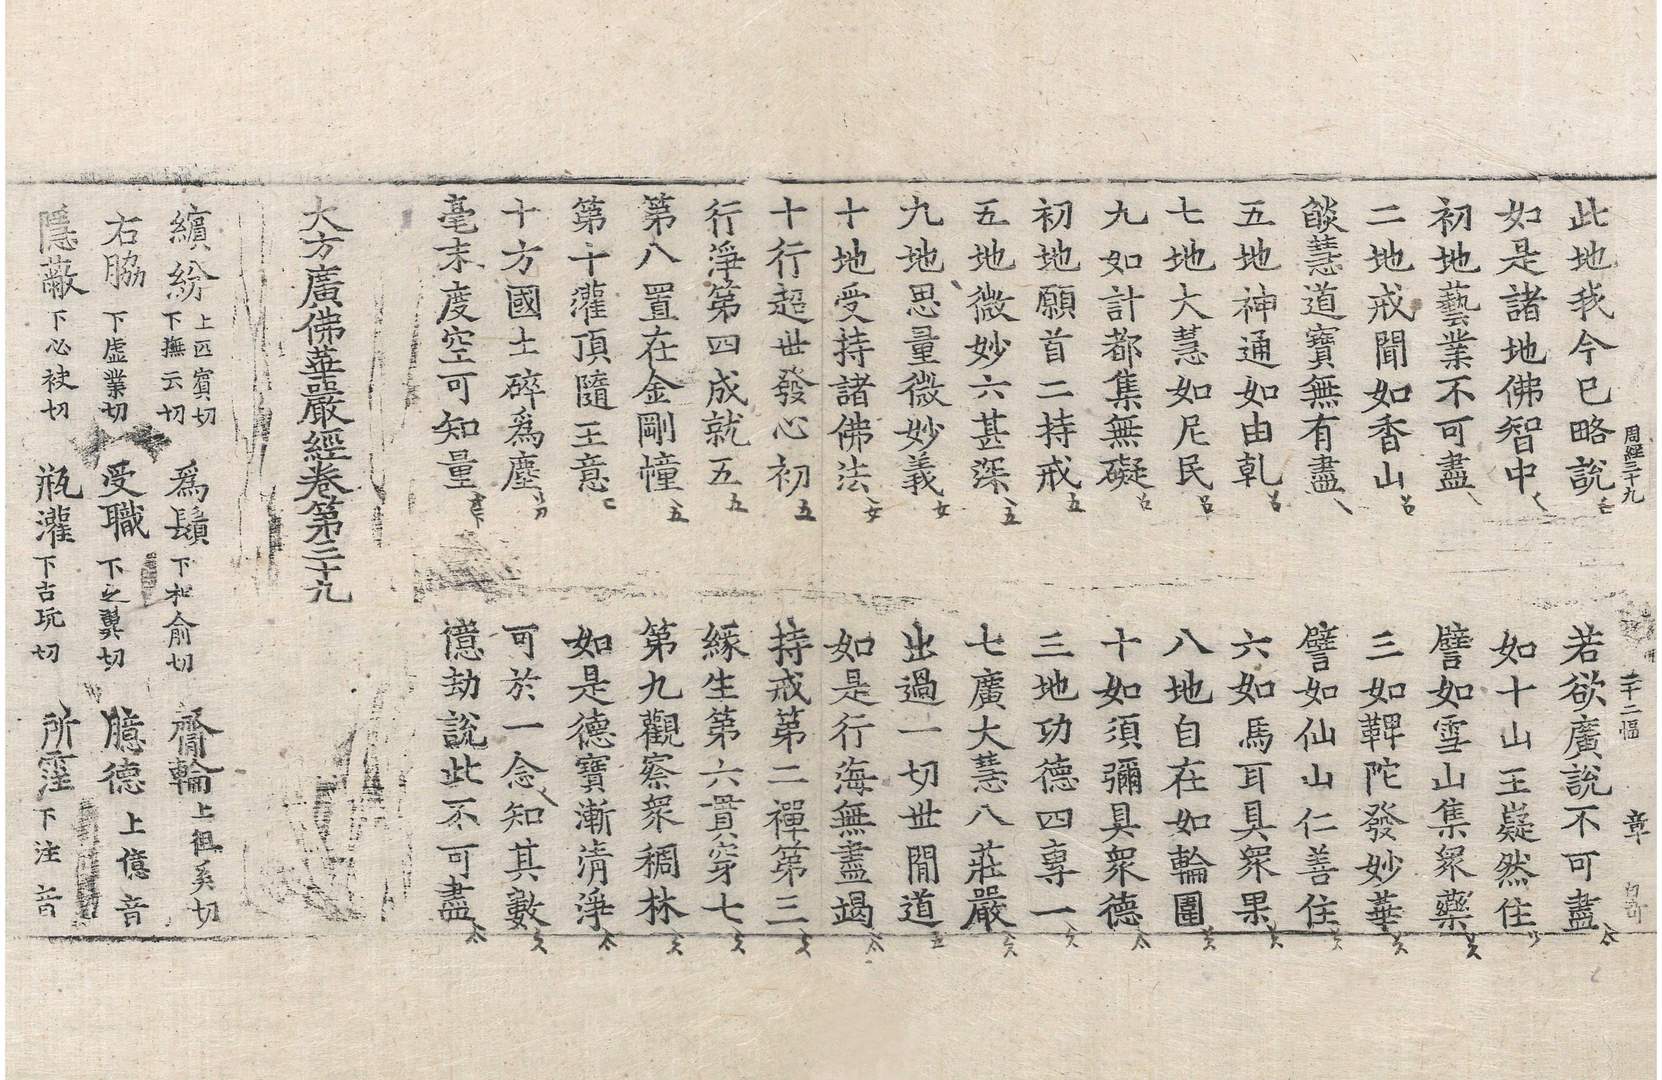 此地我今已略說 若欲廣說不可盡
周經三十九 二十二幅 章
如是諸地佛智中 如十山王嶷然住
初地藝業不可盡 譬如雪山集眾藥
二地戒聞如香山 三如鞞陀發妙華
燄慧道寶無有盡 譬如仙山仁善住
五地神通如由乹 六如馬耳具眾果
七地大慧如尼民 八地自在如輪圍
九如計都集無礙 十如須彌具眾德
初地願首二持戒 三地功德四專一
五地微妙六甚深 七廣大慧八莊嚴
九地思量微妙義 出過一切世間道
十地受持諸佛法 如是行海無盡竭
十行超世發心初 持戒第二禪第三
行淨第四成就五 緣生第六貫穿七
第八置在金剛幢 第九觀察眾稠林
第十灌頂隨王意 如是德寶漸清淨
十方國土碎為塵 可於一念知其數
毫末度空可知量 億劫說此不可盡
大方廣佛華嚴經卷第三十九
繽紛 上匹賓切 下撫云切 為鬚 下相俞切 齊輪 上徂奚切
右脇 下虛業切 受職 下之翼切 臆德 上億音
隱蔽 下必袂切 瓶灌 下古玩切 所霔 下注音